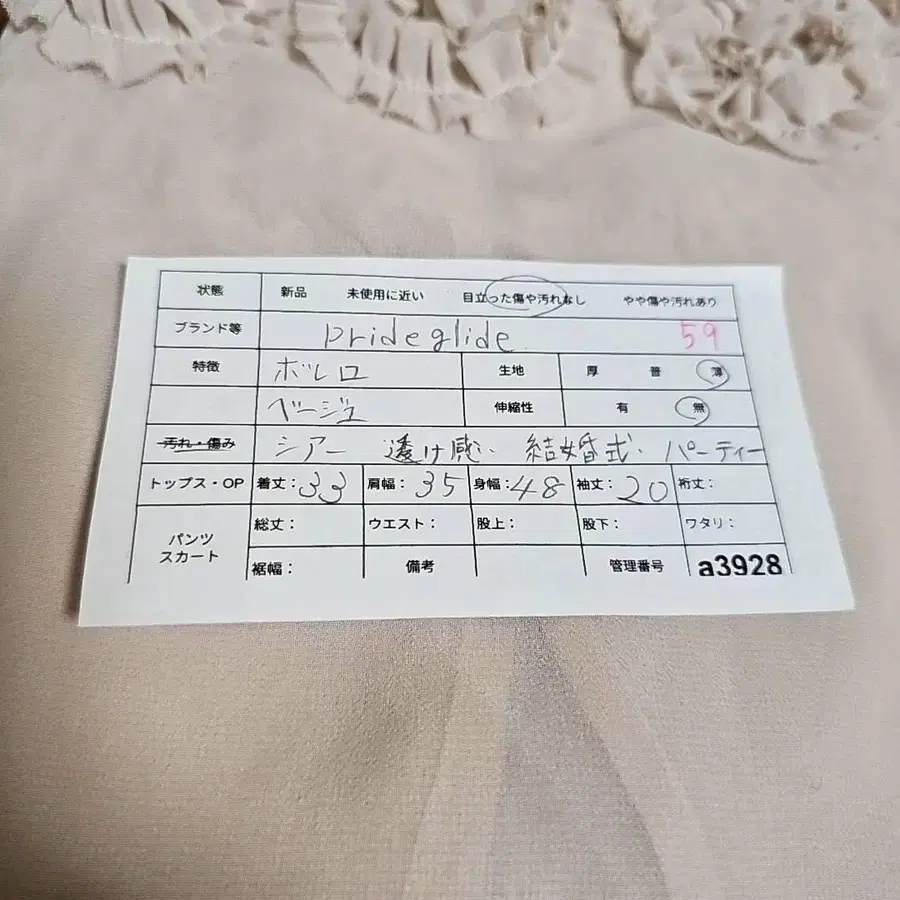 状態 新品 未使用に近い 目立った傷や汚れなし やや傷や汚れあり
ブランド等 prideglide 59
特徴 ボレロ 生地 厚 普 薄
ベージュ 伸縮性 有 無
汚れ・傷み シアー 透け感・ 結婚式・ パーティー
トップス・OP 着丈:33 肩幅:35 身幅:48 袖丈:20 裄丈:
パンツ スカート 総丈: ウエスト: 股上: 股下: ワタリ:
裾幅: 備考 管理番号 a3928